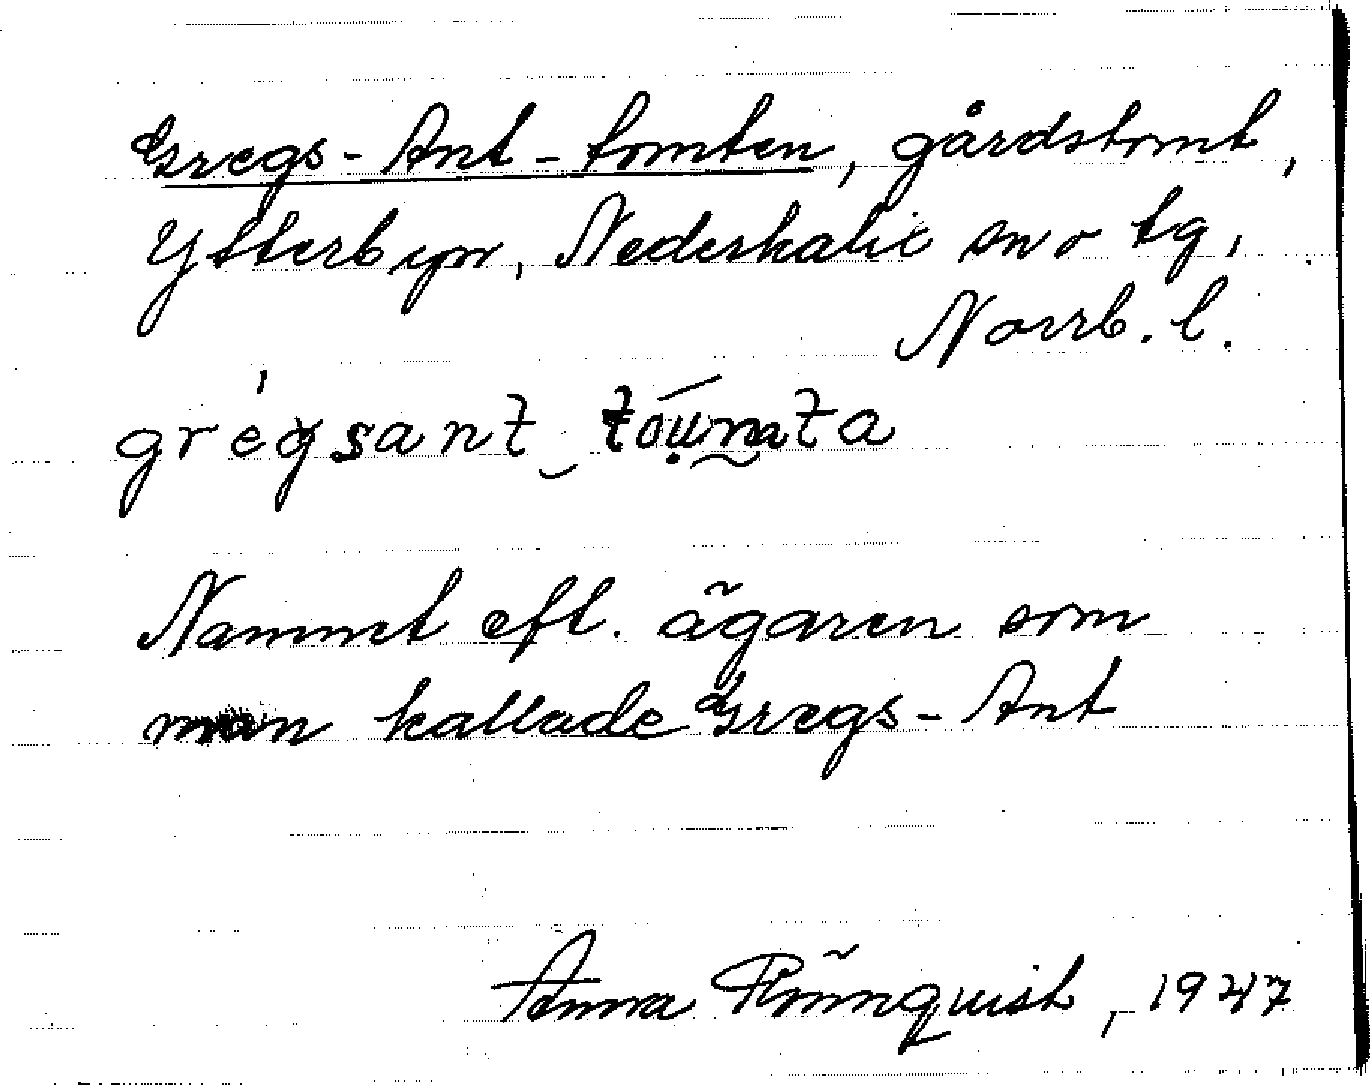 Gregs-Ant-tomten, gårdstomt,
Ytterbyn, Nederkalix sn o tg,
Norrb. l.
gregsant
Namnet eft. ägaren som
man kallade Gregs-Ant
Anna Rönnquist, 1947